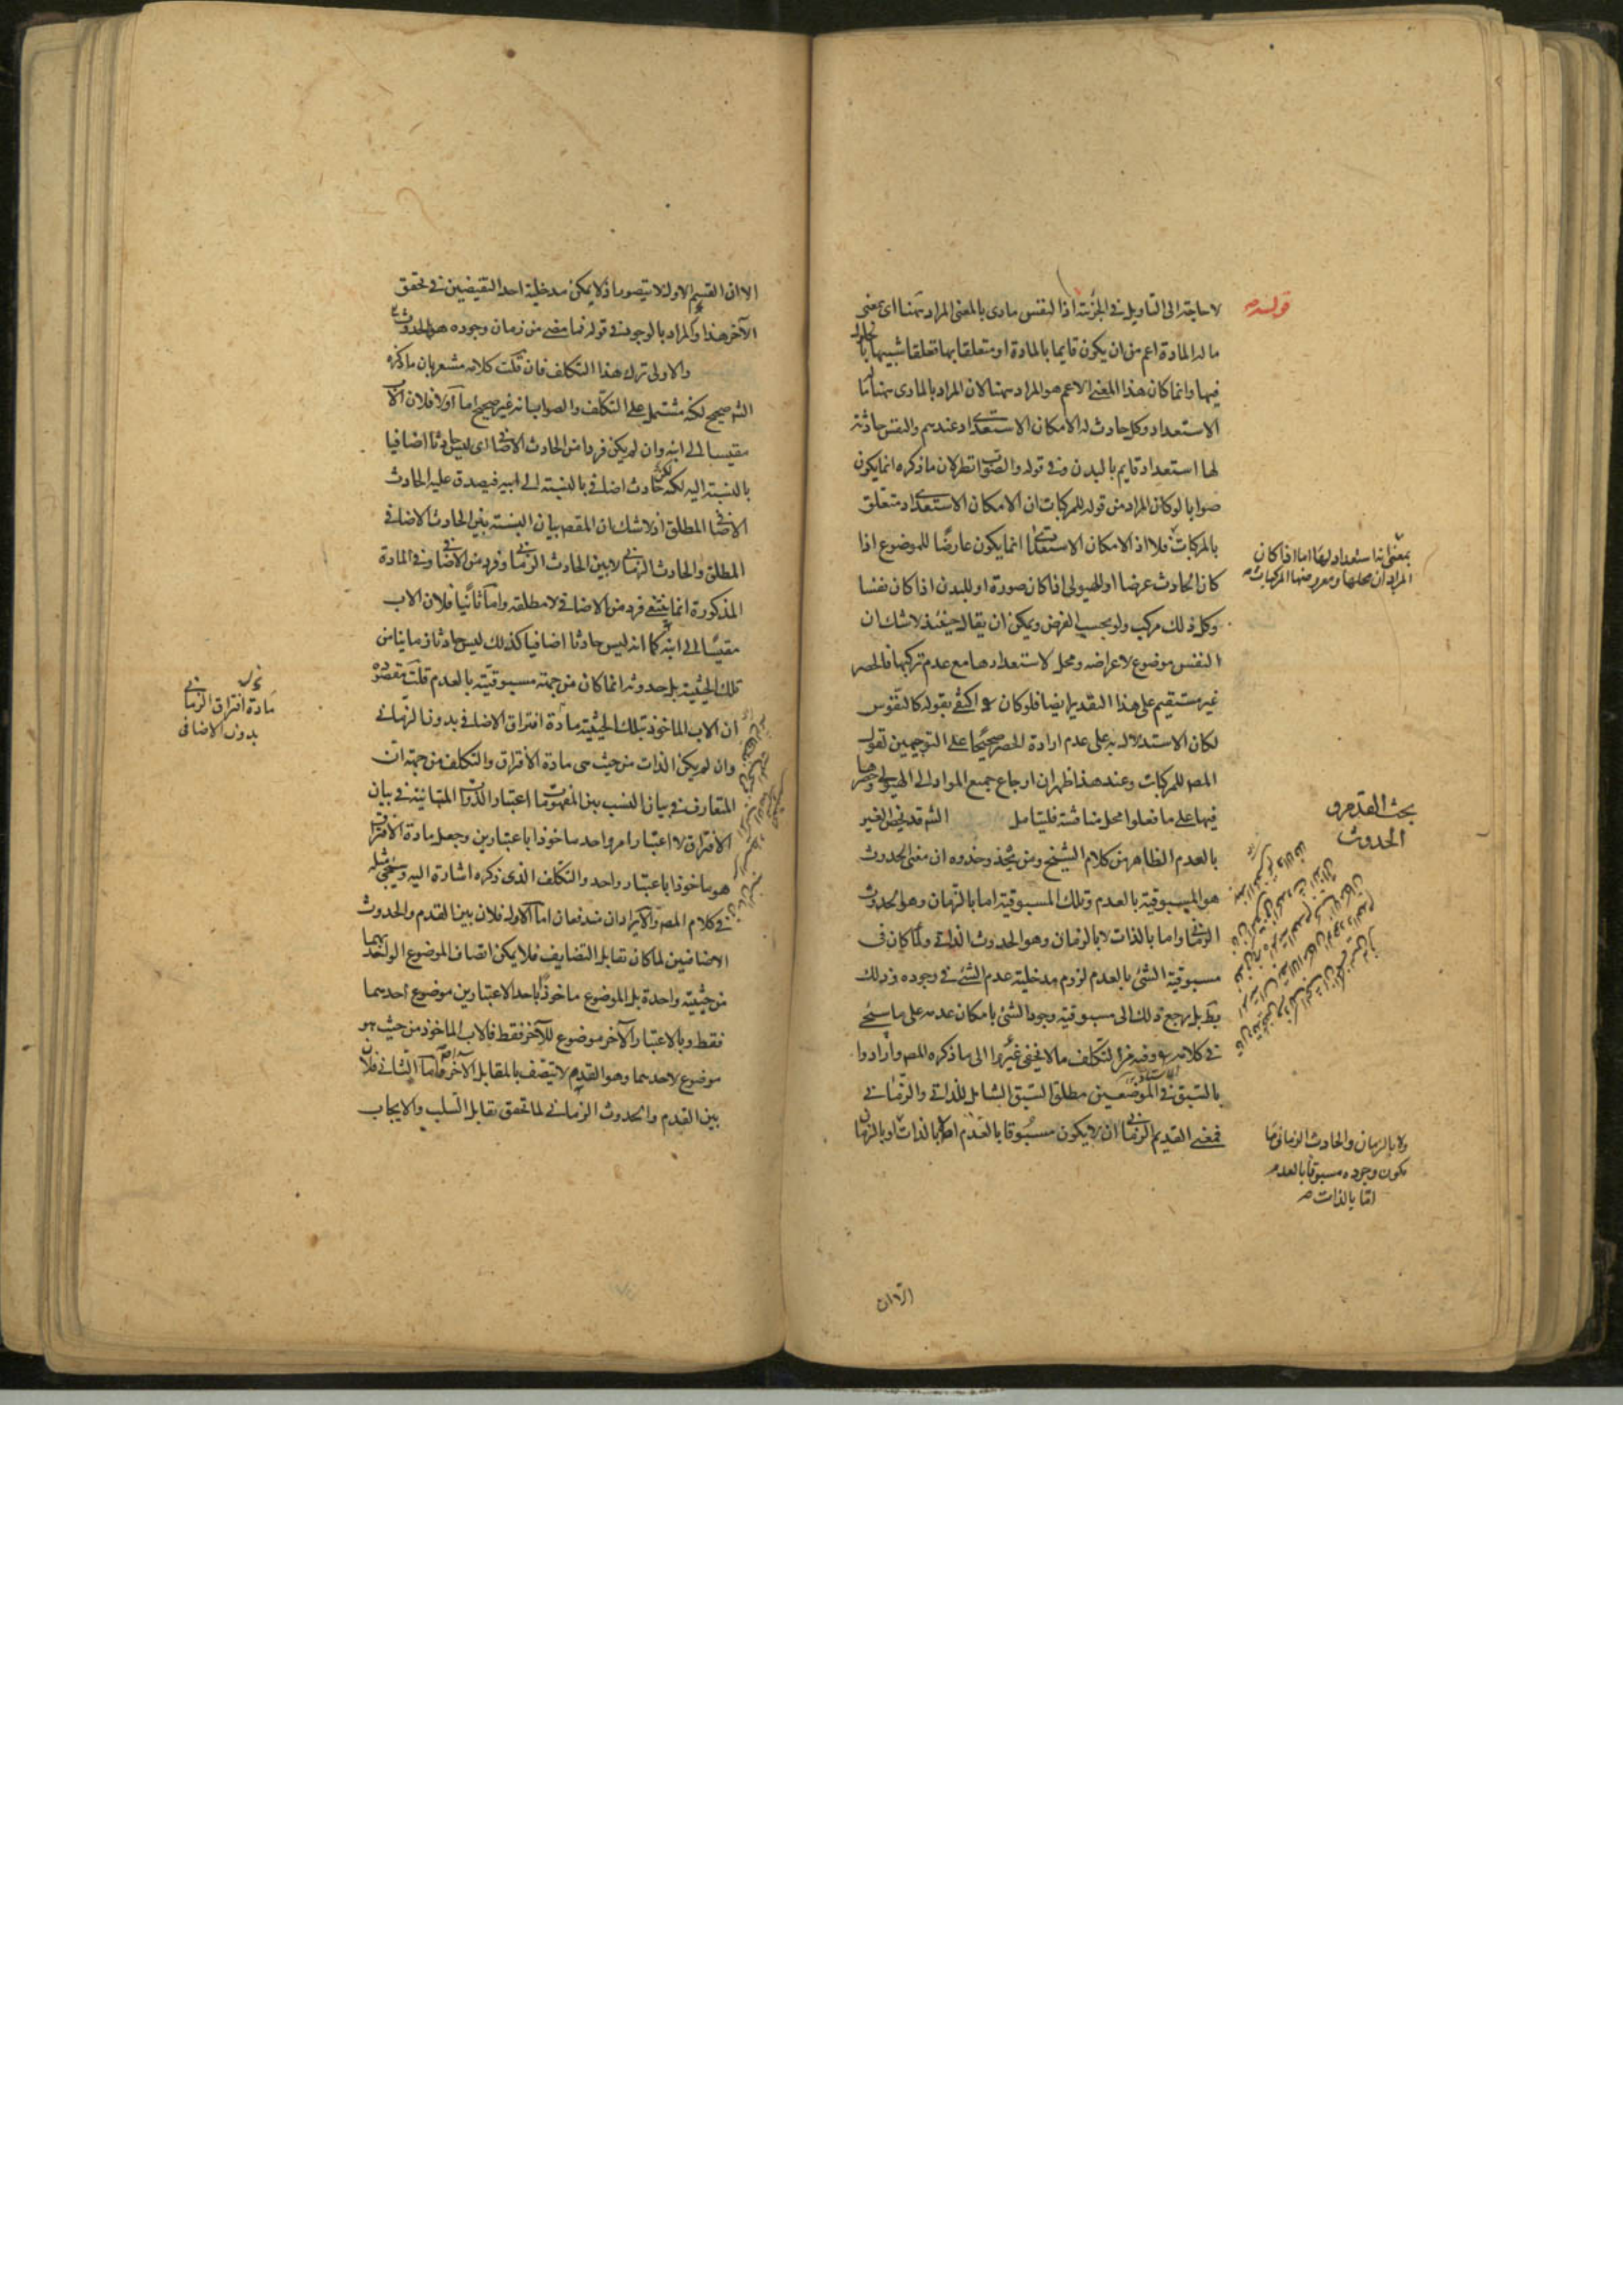 قوله
لا حاجة الى التاويل في الجزئية اذ النفس مادى بالمعنى المراد ههنا اى بمعنى
ما له المادة اعم من ان يكون قايما بالمادة او متعلقا بها تعلقا شبيها بالحلول
فيها وانما كان هذا المعنى الاعم هو المراد ههنا لان المراد بالمادى ههنا
الاستعداد وكل حادث له الامكان الاستعدادى عندهم والنفس حادثة
لها استعداد قايم بالبدن وفى قوله والصواب نظر لان ما ذكره انما يكون
صوابا لو كان المراد من قوله للمركبات ان الامكان الاستعدادى متعلق
بالمركبات فلا اذ الامكان الاستعدادى انما يكون عارضا للموضوع اذا
كان الحادث عرضا او للهيولى اذا كان صورة او للبدن اذا كان نفسا
وكل ذلك مركب ولو بحسب الفرض ويمكن ان يقال حينئذ لا شك ان
النفس موضوع لاعراضه ومحل لاستعدادها مع عدم تركبها فالحصر
غير مستقيم على هذا التقدير ايضا فلو كان اكتفى بقوله كالنفوس
لكان الاستدلال به على عدم ارادة الحصر صحيحا على التوجيهين لقول
المص للمركبات وعند هذا ظهر ان ارجاع جميع المواد الى الهيولى وحصرها
فيها على ما فعلوا محل مناقشة فليتامل الش قد يخص الغير
بالعدم الظاهر من كلام الشيخ ومن يحذو حذوه ان معنى الحدوث
هو المسبوقية بالعدم وتلك المسبوقية اما بالزمان وهو الحدوث
الزمانى واما بالذات لا بالزمان وهو الحدوث الذاتى ولما كان فى
مسبوقية الشئ بالعدم لزوم مدخلية عدم الشئ فى وجوده وذلك
بط بل يرجع ذلك الى مسبوقية وجود الشئ بامكان عدمه على ما سيجئ
فى كلامه وفيه من التكلف ما لا يخفى الى ما ذكره المص وارادوا
بالسبق فى الموضعين مطلق السبق الشامل للذاتى والزمانى
فمعنى القديم الزمانى ان لا يكون مسبوقا بالعدم اصلا لا بالذات ولا بالزمان
بمعنى انه استعداد لها اما اذا كان
المراد ان محلها ومعروضها المركبات
بحث القدم و
الحدوث
ولا بالزمان والحادث الزمانى ما
يكون وجوده مسبوقا بالعدم
اما بالذات
الا ان
الا ان القسم الاول لا يتصور اذ لا يمكن مدخلية احد النقيضين فى تحقق
الآخر هذا والمراد بالوجود فى قوله فما مضى من زمان وجوده هو الحدوث
والاولى ترك هذا التكلف فان قلت كلامه مشعر بان ما ذكره
الش صحيح لكنه مشتمل على التكلف والصواب انه غير صحيح اما اولا فلان الاب
مقيسا الى ابنه وان لم يكن فردا من الحادث الاضافى اى ليس حادثا اضافيا
بالنسبة اليه لكنه حادث اضافى بالنسبة الى ابيه فيصدق عليه الحادث
الاضافى المطلق اذ لا شك ان المقص بيان النسبة بين الحادث الاضافى
المطلق والحادث الزمانى لا بين الحادث الزمانى وفرد من الاضافى وفى المادة
المذكورة انما ينتفى فرد من الاضافى لا مطلقه واما ثانيا فلان الاب
مقيسا الى ابنه كما انه ليس حادثا اضافيا كذلك ليس حادثا زمانيا من
تلك الحيثية بل حدوثه انما كان من جهة مسبوقيته بالعدم قلت مقصوده
ان الاب الماخوذ بتلك الحيثية مادة افتراق الاضافى بدون الزمانى
وان لم يكن الذات من حيث هى مادة الافتراق والتكلف من جهة ان
المتعارف فى بيان النسب بين المفهومات اعتبار الذوات المتباينة فى بيان
الافتراق لا اعتبار امر واحد ماخوذا باعتبارين وجعل مادة الافتراق
هو ماخوذا باعتبار واحد والتكلف الذى ذكره اشارة اليه وسيجئ مثله
فى كلام المص والايرادان مندفعان اما الاول فلان بين القدم والحدوث
الاضافيين لما كان تقابل التضايف فلا يمكن اتصاف الموضوع الواحد بهما
من حيثية واحدة بل الموضوع ماخوذا باحد الاعتبارين موضوع احدهما
فقط وبالاعتبار الآخر موضوع للآخر فقط فالاب الماخوذ من حيث هو
موضوع لاحدهما وهو القدم لا يتصف بالمقابل الآخر واما الثانى فلان
بين القدم والحدوث الزمانى لما تحقق تقابل السلب والايجاب
مادة افتراق الزمانى
بدون الاضافى